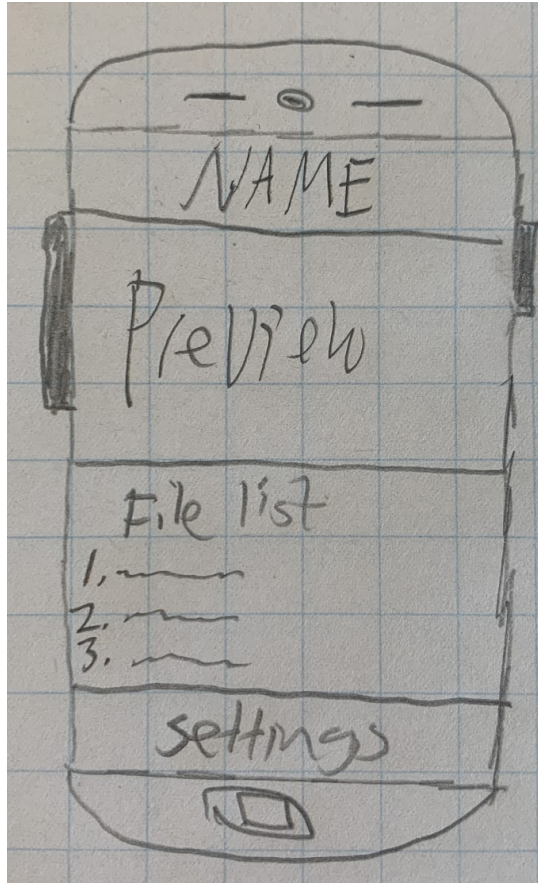 NAME
Preview
File list
1.
2.
3.
settings